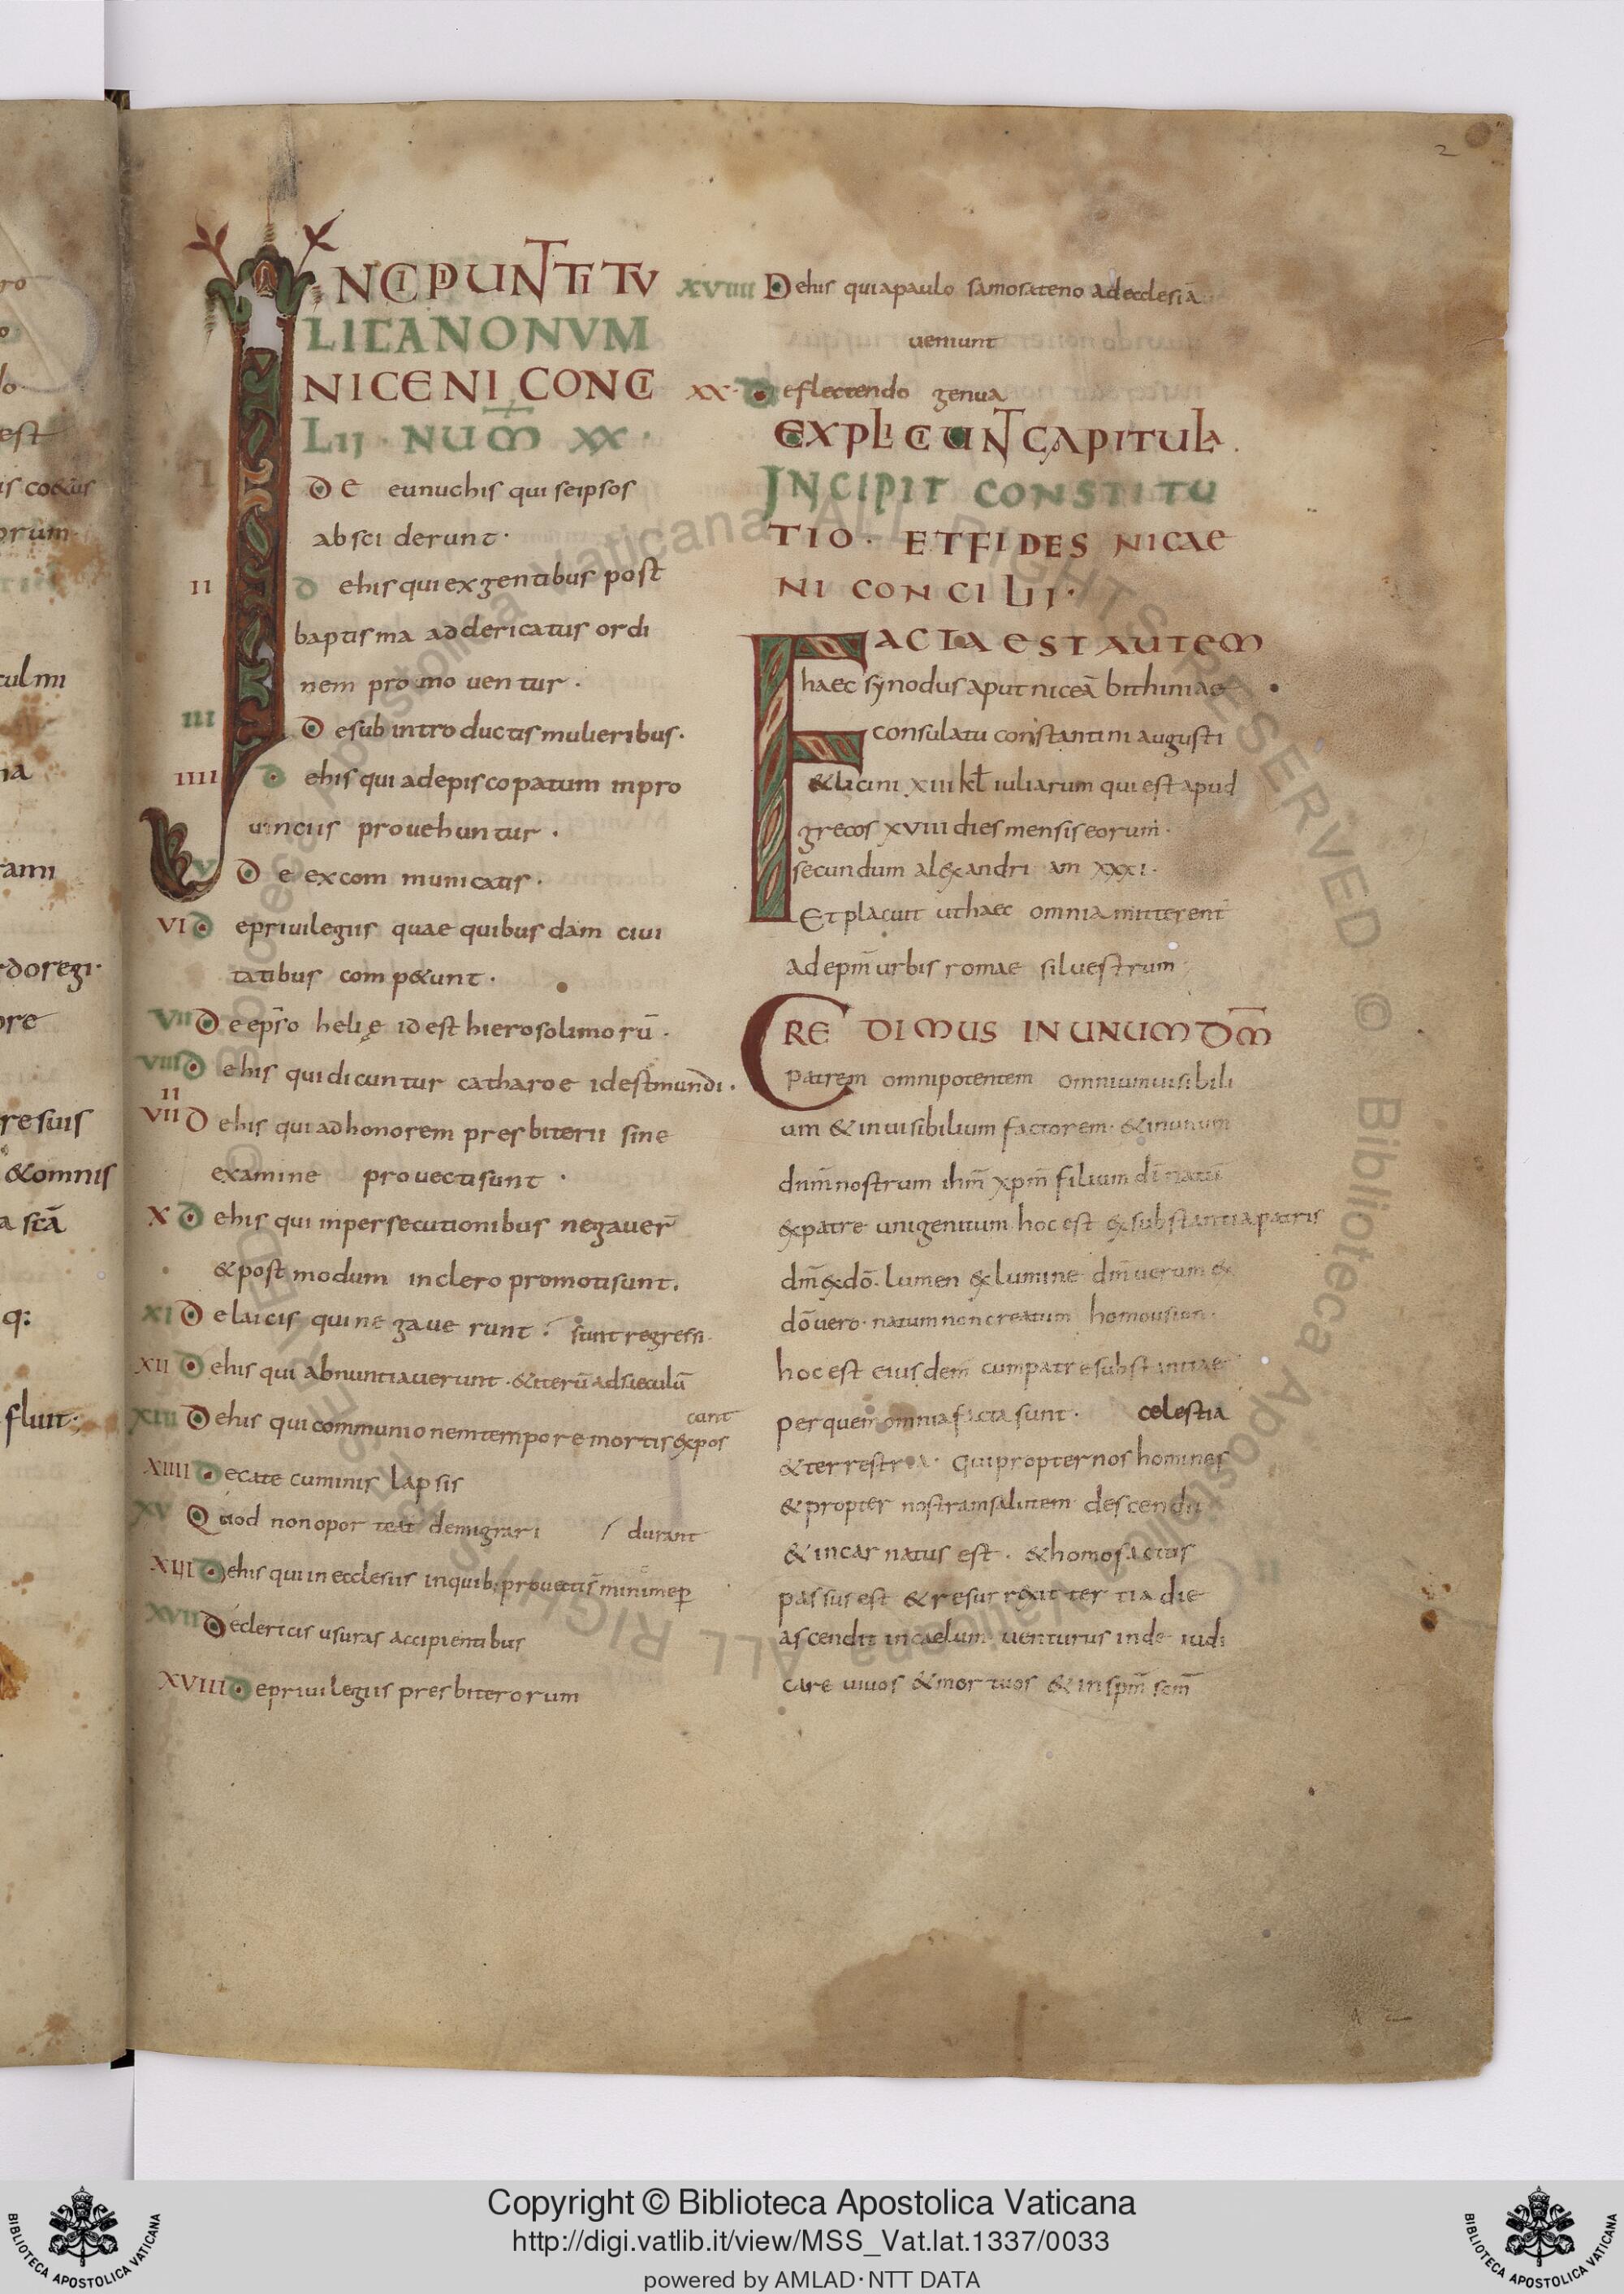 2
INCIPIUNT TITU
LI CANONUM
NICENI CONCI
LII · NUM̅ XX ·
I DE eunuchis qui seipsos
absciderunt ·
II De his qui ex gentibus post
baptisma ad clericatus ordi
nem promouentur ·
III De subintroductis mulieribus ·
IIII De his qui ad episcopatum in pro
uinciis prouehuntur ·
V De excommunicatis ·
VI De priuilegiis quae quibusdam ciui
tatibus compe&unt ·
VII De ep̅ro helię id est hierosolimorū ·
VIII De his qui dicuntur catharoe id est mundi ·
VIIII De his qui ad honorem presbiterii sine
examine prouecti sunt ·
X De his qui in persecutionibus negauer̅
& postmodum in clero promoti sunt.
XI De laicis qui negauerunt · sunt regressi ·
XII De his qui abnuntiauerunt · & iterū ad sęculū
XIII De his qui communionem tempore mortis expos
cunt
XIIII De catecuminis lapsis
XV Quod non oporteat demigrari / durant
XVI De his qui in ecclesiis in quib; prouecti s̅ minime p̲
XVII De clericis usuras accipientibus
XVIII De priuilegiis presbiterorum
XVIIII De his qui a paulo samosateno ad ecclesiā
ueniunt
XX · De flectendo genua
EXPLICIUNT CAPITULA .
INCIPIT CONSTITU
TIO · ET FIDES NICAE
NI CONCILII ·
FACTA EST AUTEM
haec synodus aput niceā bithiniae ·
consulatu constantini augusti
& licini XIII kl̅ iuliarum qui est apud
grecos XVIII dies mensis eorum ·
secundum alexandri an XXXI ·
Et placuit ut haec omnia mitterent
ad ep̅m urbis romae siluestrum
CREDIMUS IN UNUM D̅M
patrem omnipotentem omnium uisibili
um & inuisibilium factorem · & in unum
dn̅m nostrum ih̅m xp̅m filium di̅ natū
ex patre unigenitum hoc est ex substantia patris
dm̅ ex dō · Lumen ex lumine dm̅ uerum ex
dō uero · natum non creatum homousion ·
hoc est eiusdem cum patre substantiae
per quem omnia facta sunt · celestia
& terrestria · Qui propter nos homines
& propter nostram salutem descendit
& incarnatus est · & homo factus
passus est & resurrexit tertia die
ascendit in caelum uenturus inde iudi
care uiuos & mortuos & in sp̅m sc̅m
ro
lo
est
orum
culmi
na
rami
rdoregi ·
ore
re suis
& omnis
a sc̅a
q:
fluit ·
© Biblioteca Apostolica Vaticana ALL RIGHTS RESERVED © Biblioteca Apostolica Vaticana ALL RIGHTS RESERVED
Copyright © Biblioteca Apostolica Vaticana
http://digi.vatlib.it/view/MSS_Vat.lat.1337/0033
powered by AMLAD·NTT DATA
BIBLIOTECA APOSTOLICA VATICANA
BIBLIOTECA APOSTOLICA VATICANA